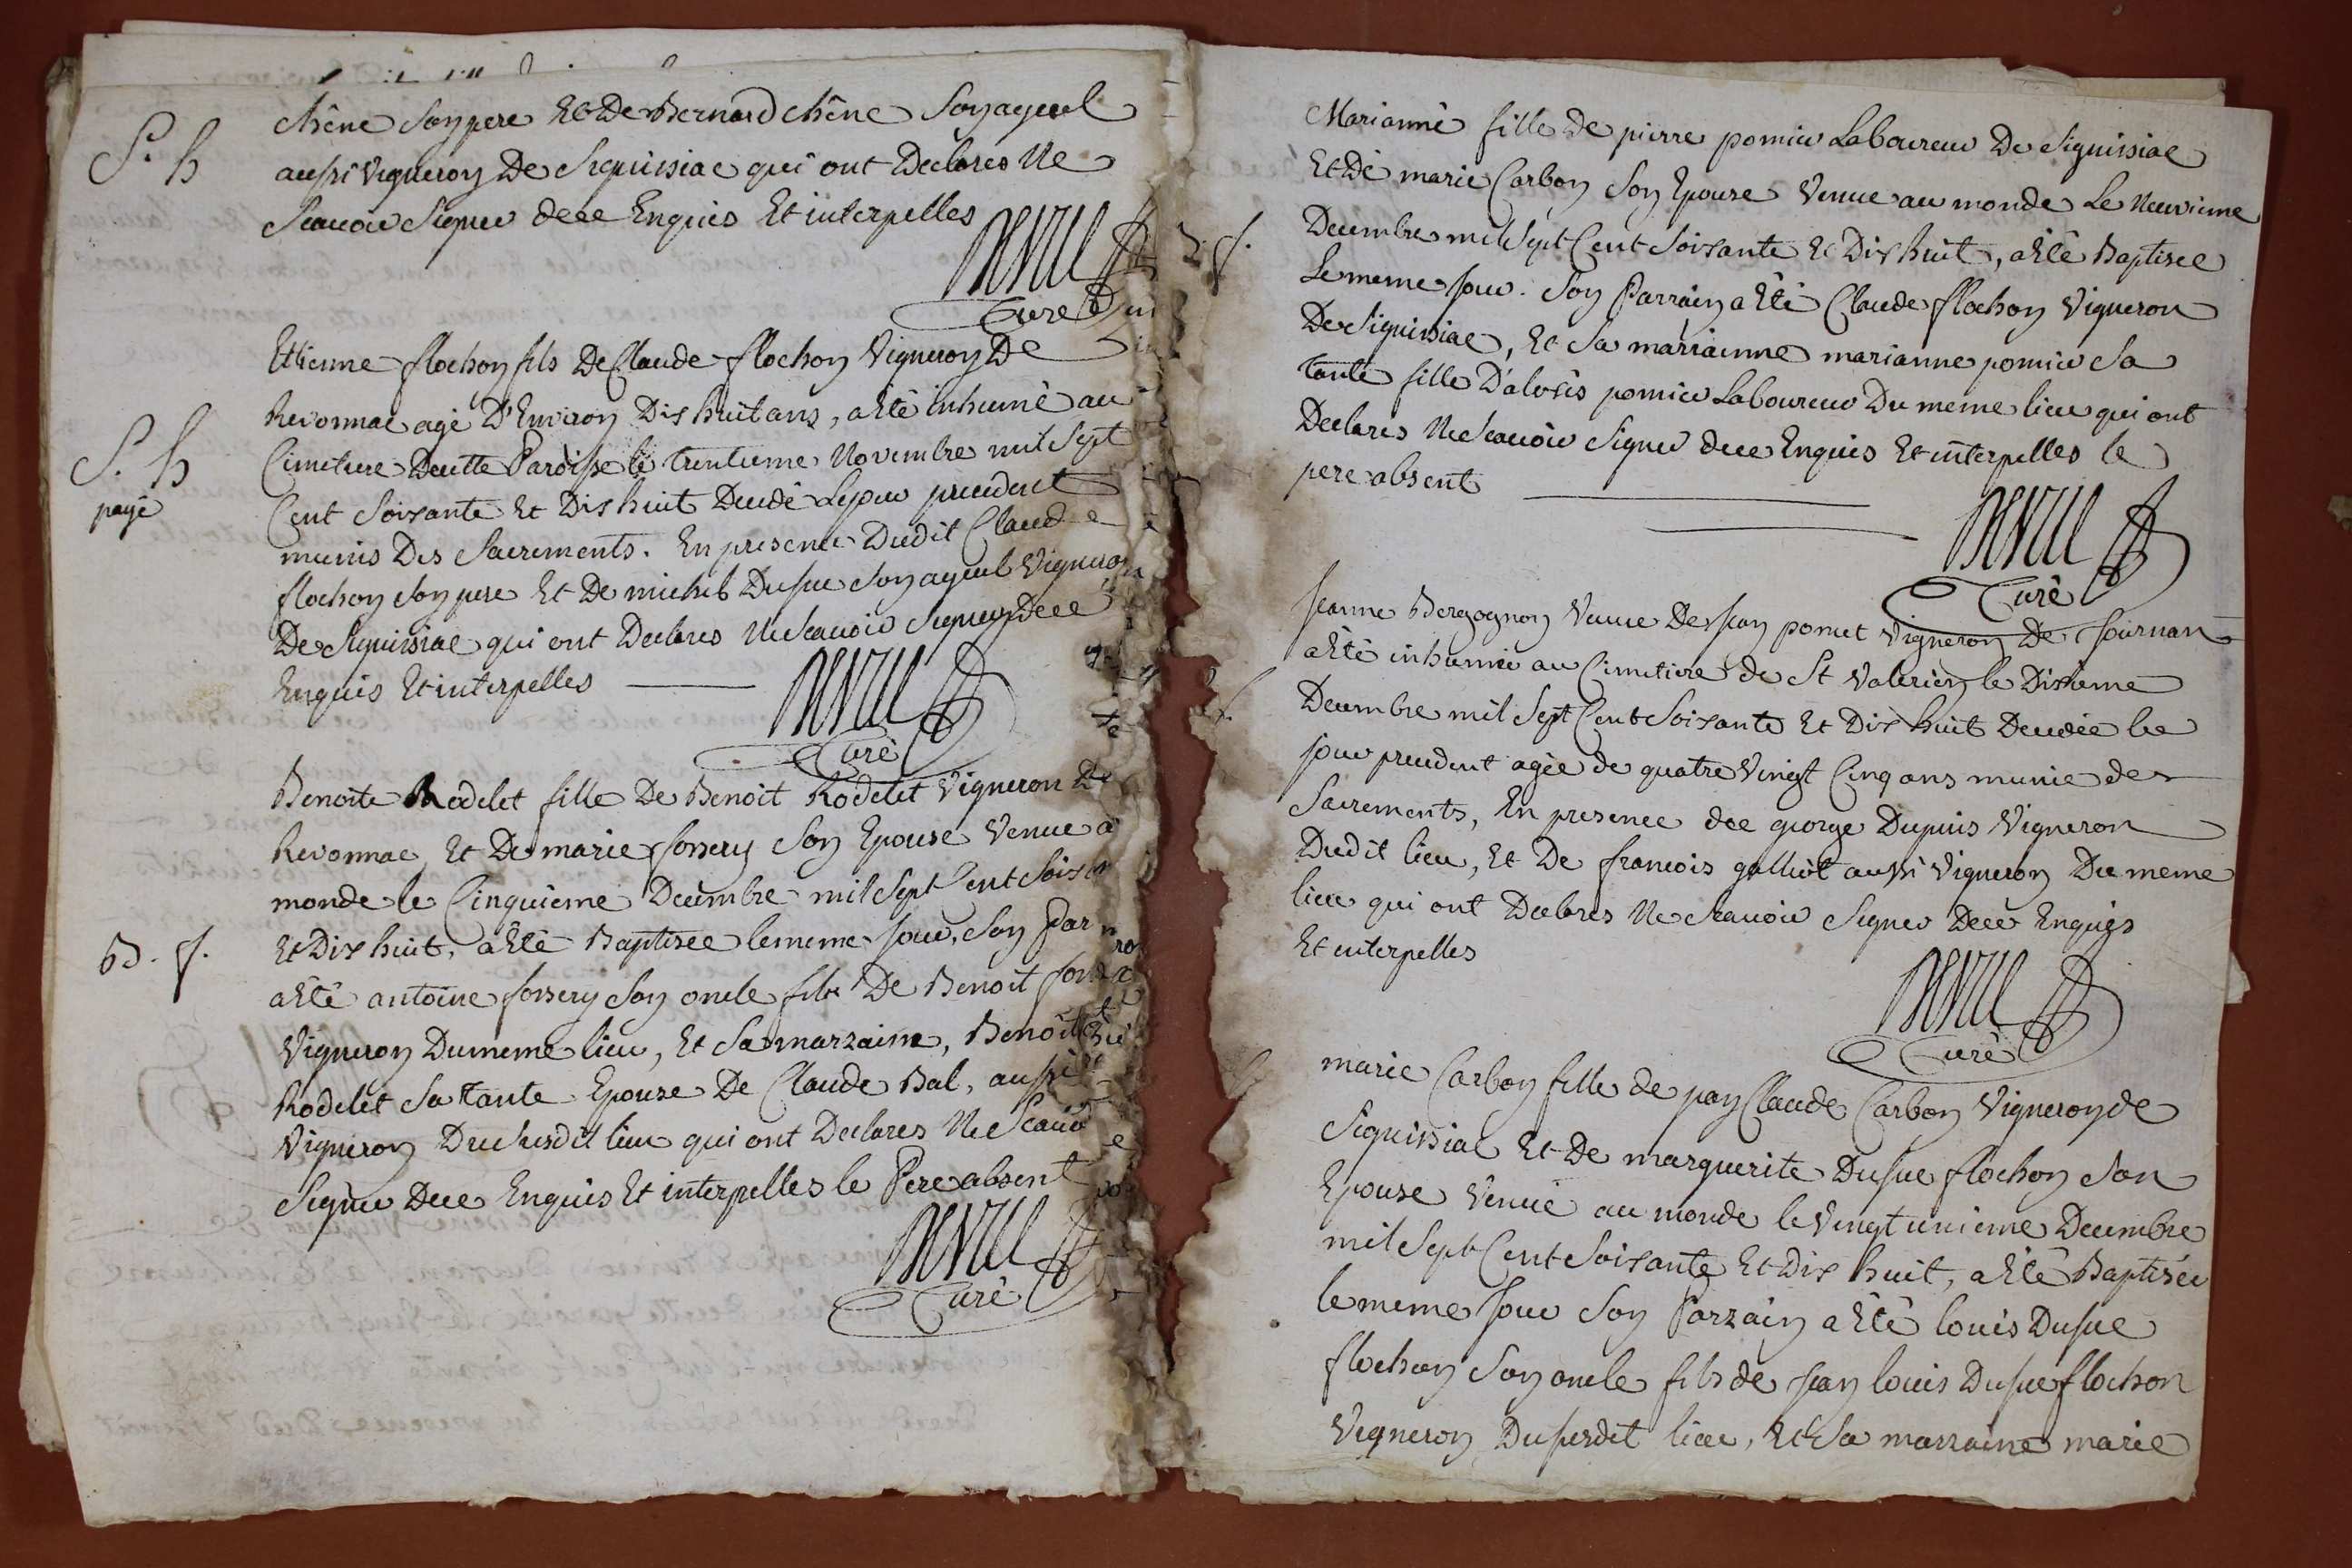 chêne Son pere Et De Bernard chêne Son ayeul
S. h
aussi vigneron De Siquissiac qui ont Declares Ne
Scavoir Signer dece Enquis Et interpelles
Curé
Etienne flochon fils De Claude flochon Vigneron De
Revonnac agé D'Environ Dix huit ans, a Eté inhumé au
S. h
payé
Cimetiere Decette Paroisse le trentieme Novembre mil Sept
Cent Soixante Et Dix huit Decedé Lejour precedent
munis Des Sacrements. En presence Dudit Claude
flochon Son pere Et De michel Dusue Son ayeul Vigneron
De Siquissiac qui ont Declares Ne Scavoir Signer Dece
Enquis Et interpelles
Curé
Benoite Rodelet fille De Benoit Rodelet Vigneron De
Revonnac, Et De marie forrery Son Epouse Venue a
monde le Cinquième Decembre mil Sept Cent Soix
B. f.
Et Dix huit, a Eté Baptisée lememe Jour, Son Par
a Eté antoine forrery Son oncle fils De Benoit
Vigneron Dumeme lieu, Et Sa marraine, Benoite
Rodelet Sa tante Epouse De Claude Bal, aussi
Vigneron Du susdit lieu qui ont Declares Ne Scavoi
Signer Dece Enquis Et interpelles le Pere absent
Curé
Marianne fille de pierre pomier Laboureur De Siquissiac
Et De marie Carbon Son Epouse Venue au monde Le Neuvieme
B. f.
Decembre mil Sept Cent Soixante Et Dix huit, a Eté Baptisée
Le meme Jour. Son Parrain a Eté Claude flochon Vigneron
De Siquissiac, Et Sa marrainne marianne pomier Sa
tante fille D'aloris pomier Laboureur Du meme lieu qui ont
Declares Ne Scavoir Signer dece Enquis Et interpelles le
pere absent
Curé
Jeanne Bergognon Veuve De Jean pomet Vigneron De Journan
a Eté inhumée au Cimetiere de St Valerien le Dixieme
Decembre mil Sept Cent Soixante Et Dix huit Decedée le
jour precedent agée de quatre Vingt Cinq ans munie des
Sacrements, En presence de george Dupuis Vigneron
Dudit lieu, Et De francois galliot aussi Vigneron Du meme
lieu qui ont Declares Ne Scavoir Signer Dece Enquis
Et interpelles
Curé
marie Carbon fille de Jean Claude Carbon Vigneron de
Siquissiac Et De marguerite Dusue flochon Son
Epouse Venue au monde le Vingt unieme Decembre
mil Sept Cent Soixante Et Dix huit, a Eté Baptisée
le meme Jour Son Parrain a Eté louis Dusue
flochon Son oncle fils de Jean louis Dusue flochon
Vigneron Dususdit lieu, Et Sa marraine marie